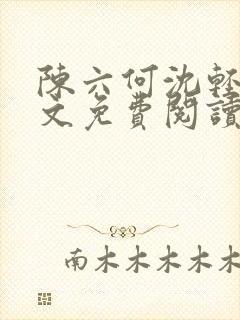 陳六何沈輕
文免費閱讀
南木木木木木